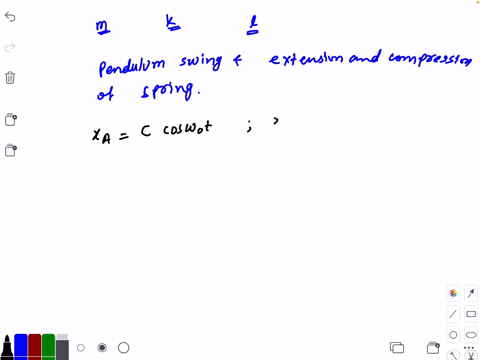 m k l
Pendulum swing & extension and compression
of spring.
x_A = C cos ω₀t ;